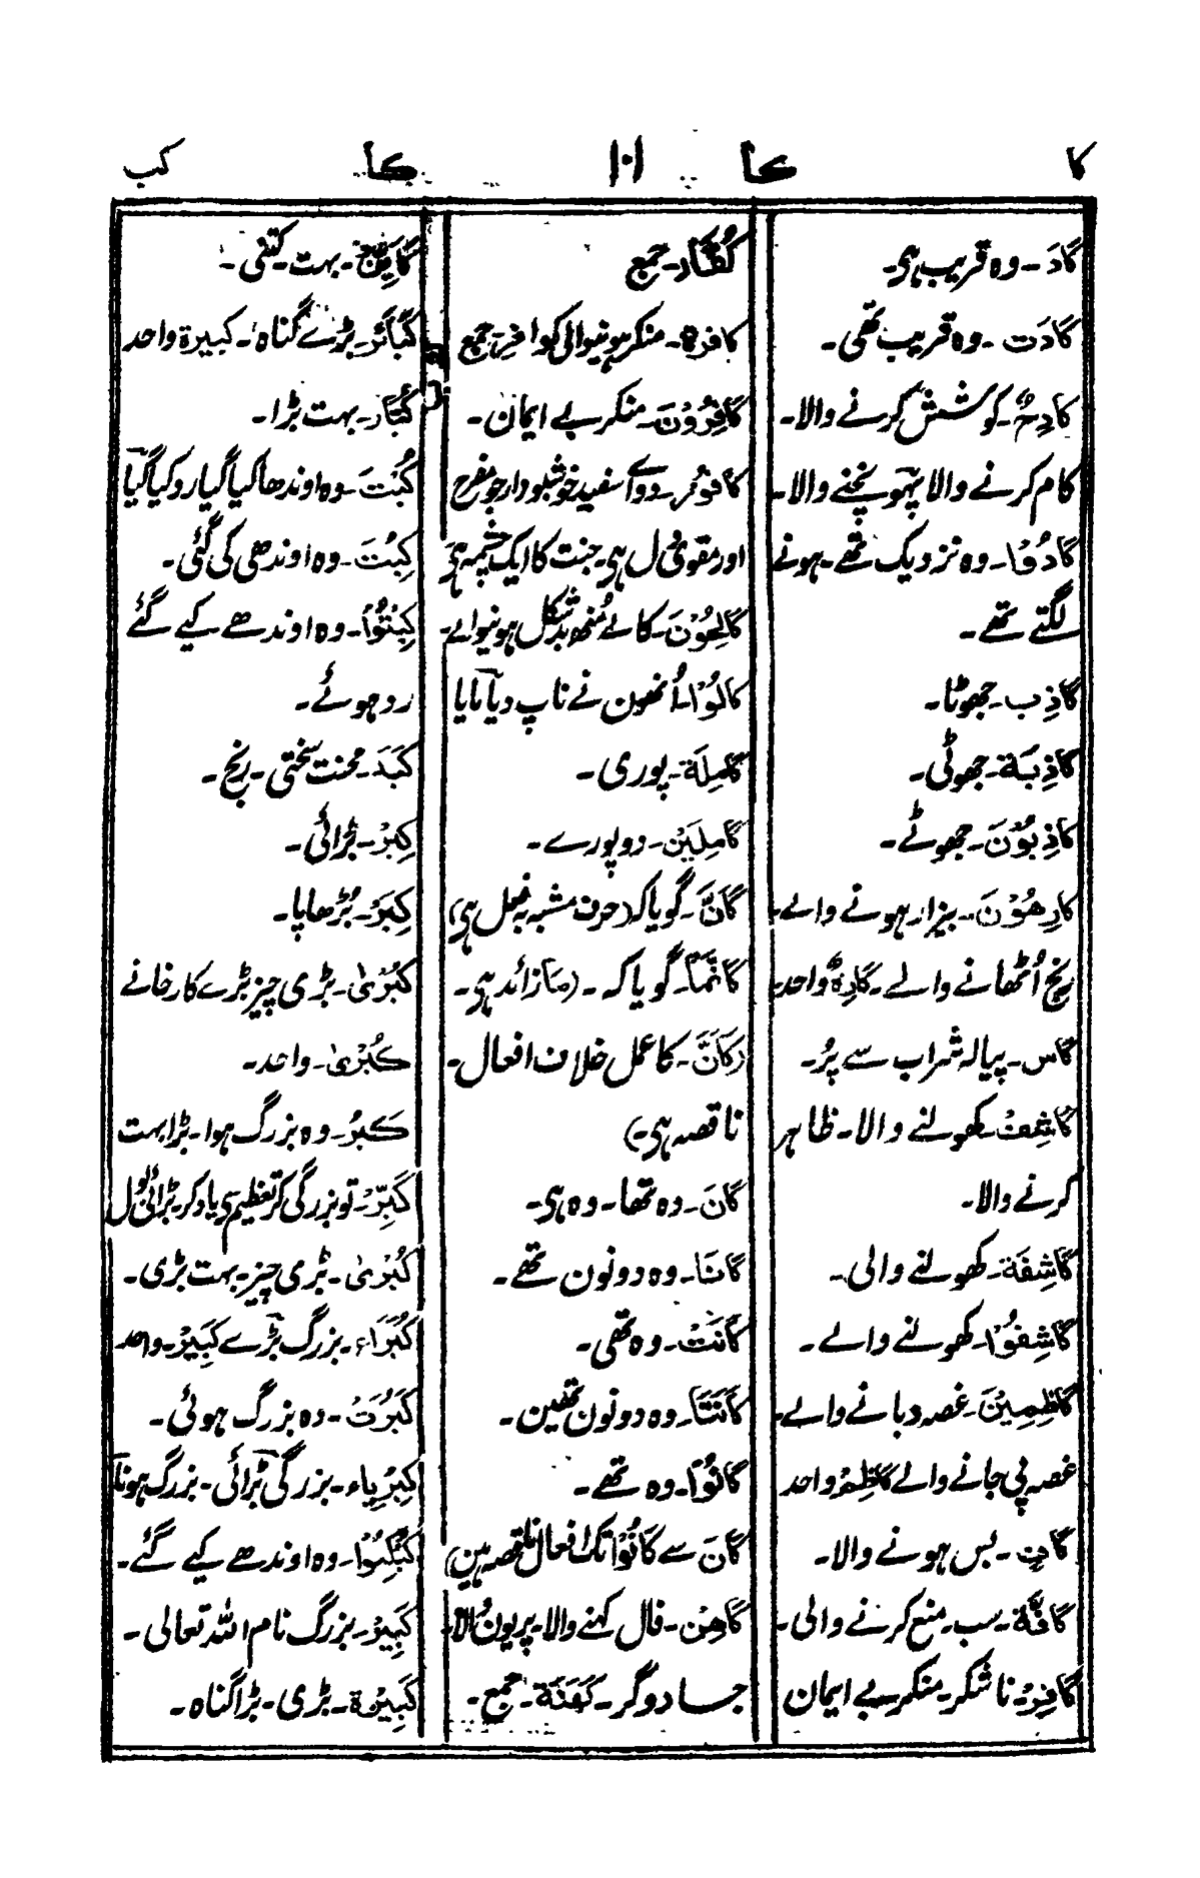 کا کا ۱۰۱ کا کب
کَادَ۔ وہ قریب ہی۔
کَادَت ۔ وہ قریب تھی۔
کَادِحٌ۔ کوشش کرنے والا۔
کام کرنے والا پہونچنے والا۔
کَادُوْا۔ وہ نزدیک تھے۔ ہونے
لگتے تھے۔
کَاذِب۔ جھوٹا۔
کَاذِبَة۔ جھوٹی۔
کَاذِبُوْنَ۔ جھوٹے۔
کَارِهُوْنَ۔ بیزار ہونے والے۔
رنج اُٹھانے والے۔ کَارِهٌ واحد۔
کَاس۔ پیالہ شراب سے پُر۔
کَاشِفْ۔ کھولنے والا۔ ظاہر
کرنے والا۔
کَاشِفَة۔ کھولنے والی۔
کَاشِفُوْا۔ کھولنے والے۔
کَاظِمِیْنَ۔ غصہ دبانے والے۔
غصہ پی جانے والے کَاظِمْ واحد
کَافٍ۔ بس ہونے والا۔
کَافَّة۔ سب۔ منع کرنے والی۔
کَافِرْ۔ ناشکر۔ منکر۔ بے ایمان
کُفَّار۔ جمع
کافرة۔ منکر ہونیوالی کوافر۔ جمع
کَافِرُوْنَ۔ منکر بے ایمان۔
کافور۔ دوا سفید خوشبودار جو مفرح
اور مقوی دل ہی۔ جنت کا ایک چشمہ ہی
کَالِحُوْنَ۔ کالے مُنھ بدشکل ہونیوالے۔
کَالُوْا۔ اُنھون نے ناپ دیا یا ناپا
کَامِلَة۔ پوری۔
کَامِلَیْن۔ دو پورے۔
کَاَنَّ۔ گویا کہ (حرف مشبہ بہ فعل ہی)
کَاَنَّمَا۔ گویا کہ۔ (مَا زائد ہی۔
(کَانَ۔ کا عمل خلاف افعال۔
ناقصہ ہی۔)
کَانَ۔ وہ تھا۔ وہ ہی۔
کَانَا۔ وہ دونون تھے۔
کَانَتْ۔ وہ تھی۔
کَانَتَا۔ وہ دونون تھین۔
کَانُوْا۔ وہ تھے۔
کَانَ سے کَانُوْا تک افعال ناقصہ ہین)
کَاهِن۔ فال کہنے والا۔ پریون والا۔
جادوگر۔ کَهَنَة۔ جمع۔
کَاَیِّنْ۔ بہت۔ کتنی۔
کَبَائِر۔ بڑے گناہ۔ کبیرة واحد
کُبَّار۔ بہت بڑا۔
کُبِتَ۔ وہ اوندھا کیا گیا رد کیا گیا
کُبَّتْ۔ وہ اوندھی کی گئی۔
کُبِتُوْا۔ وہ اوندھے کیے گئے
رد ہوئے۔
کَبَدَ۔ محنت سختی۔ رنج۔
کِبْر۔ بڑائی۔
کِبَرُ۔ بُڑھاپا۔
کُبْرٰی۔ بڑی چیز بڑے کارخانے
کُبْرٰی۔ واحد۔
کَبُرَ۔ وہ بزرگ ہوا۔ بڑا بہت
کَبِّرْ۔ تو بزرگی کر تعظیم سے یاد کر۔ بڑائی بول
کُبْرٰی۔ بڑی چیز۔ بہت بڑی۔
کُبَرَاء۔ بزرگ بڑے کَبِیْر۔ واحد
کَبُرَتْ۔ وہ بزرگ ہوئی۔
کِبْرِیاء۔ بزرگی بڑائی۔ بزرگ ہونا
کُبْکِبُوْا۔ وہ اوندھے کیے گئے۔
کَبِیْرُ۔ بزرگ نام اللہ تعالی۔
کَبِیْرَة۔ بڑی۔ بڑا گناہ۔